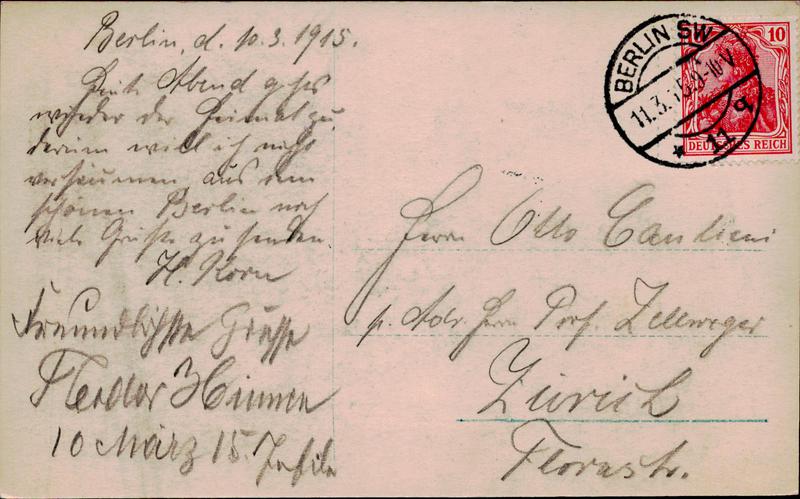 Berlin, d. 10.3.1915.
Heute Abend gehts
wieder der Heimat zu
darum will ich nicht
versäumen aus dem
schönen Berlin noch
viele Grüße zu senden.
H. Korn
Freundlichste Grüsse
Theodor
10 März 15.
BERLIN SW
11.3.15.9-10 V
* 11 q
10
DEUTSCHES REICH
Herrn Otto
p. Adr. Herrn Prof. Zellweger
Zürich
Florastr.